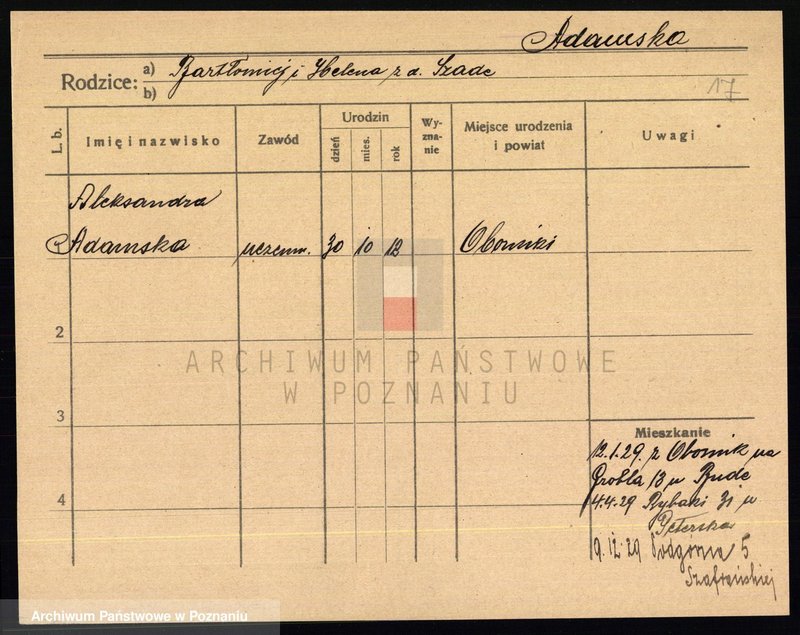 Adamska
Rodzice: a) Bartłomiej i Helena z d. Szade
b)
17
L. b.
Imię i nazwisko
Zawód
Urodzin
dzień
mies.
rok
Wy-
zna-
nie
Miejsce urodzenia
i powiat
Uwagi
Aleksandra
Adamska uczenn. 30 10 12 Oborniki
2
3
4
ARCHIWUM PAŃSTWOWE
W POZNANIU
Mieszkanie
12.1.29. z Obornik na
Grobla 13 u Bude
4.4.29 Rybaki 31 u
Peterska
9.12.29 Podgórna 5
Szafrańskiej
Archiwum Państwowe w Poznaniu